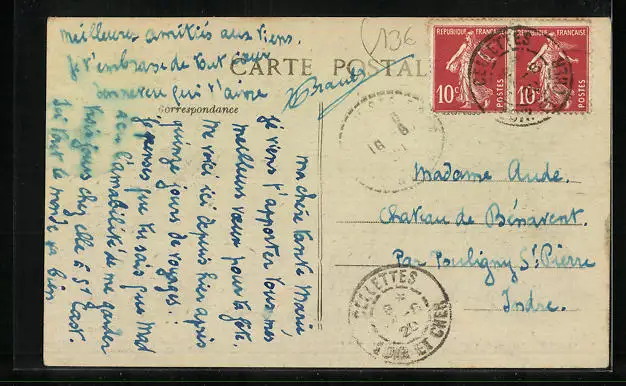 Meilleures amitiés aux tiens.
Je t'embrasse de tout cœur
ton neveu qui t'aime
136
CARTE POSTALE
Correspondance
ma chère tante Marie,
Je viens t'apporter tous mes
meilleurs vœux pour ta fête.
Me voici ici depuis hier après
quinze jours de voyages.
Je pense que tu sais que Mad
a eu l'amabilité de me garder
toujours chez elle à St
Ici tout le monde va bien
REPUBLIQUE FRANÇAISE
10c
POSTES
REPUBLIQUE FRANÇAISE
10c
POSTES
CELLETTES
Madame Aude.
Château de Bénavent.
Par Pouligny St Pierre
Indre.
CELLETTES
LOIR ET CHER